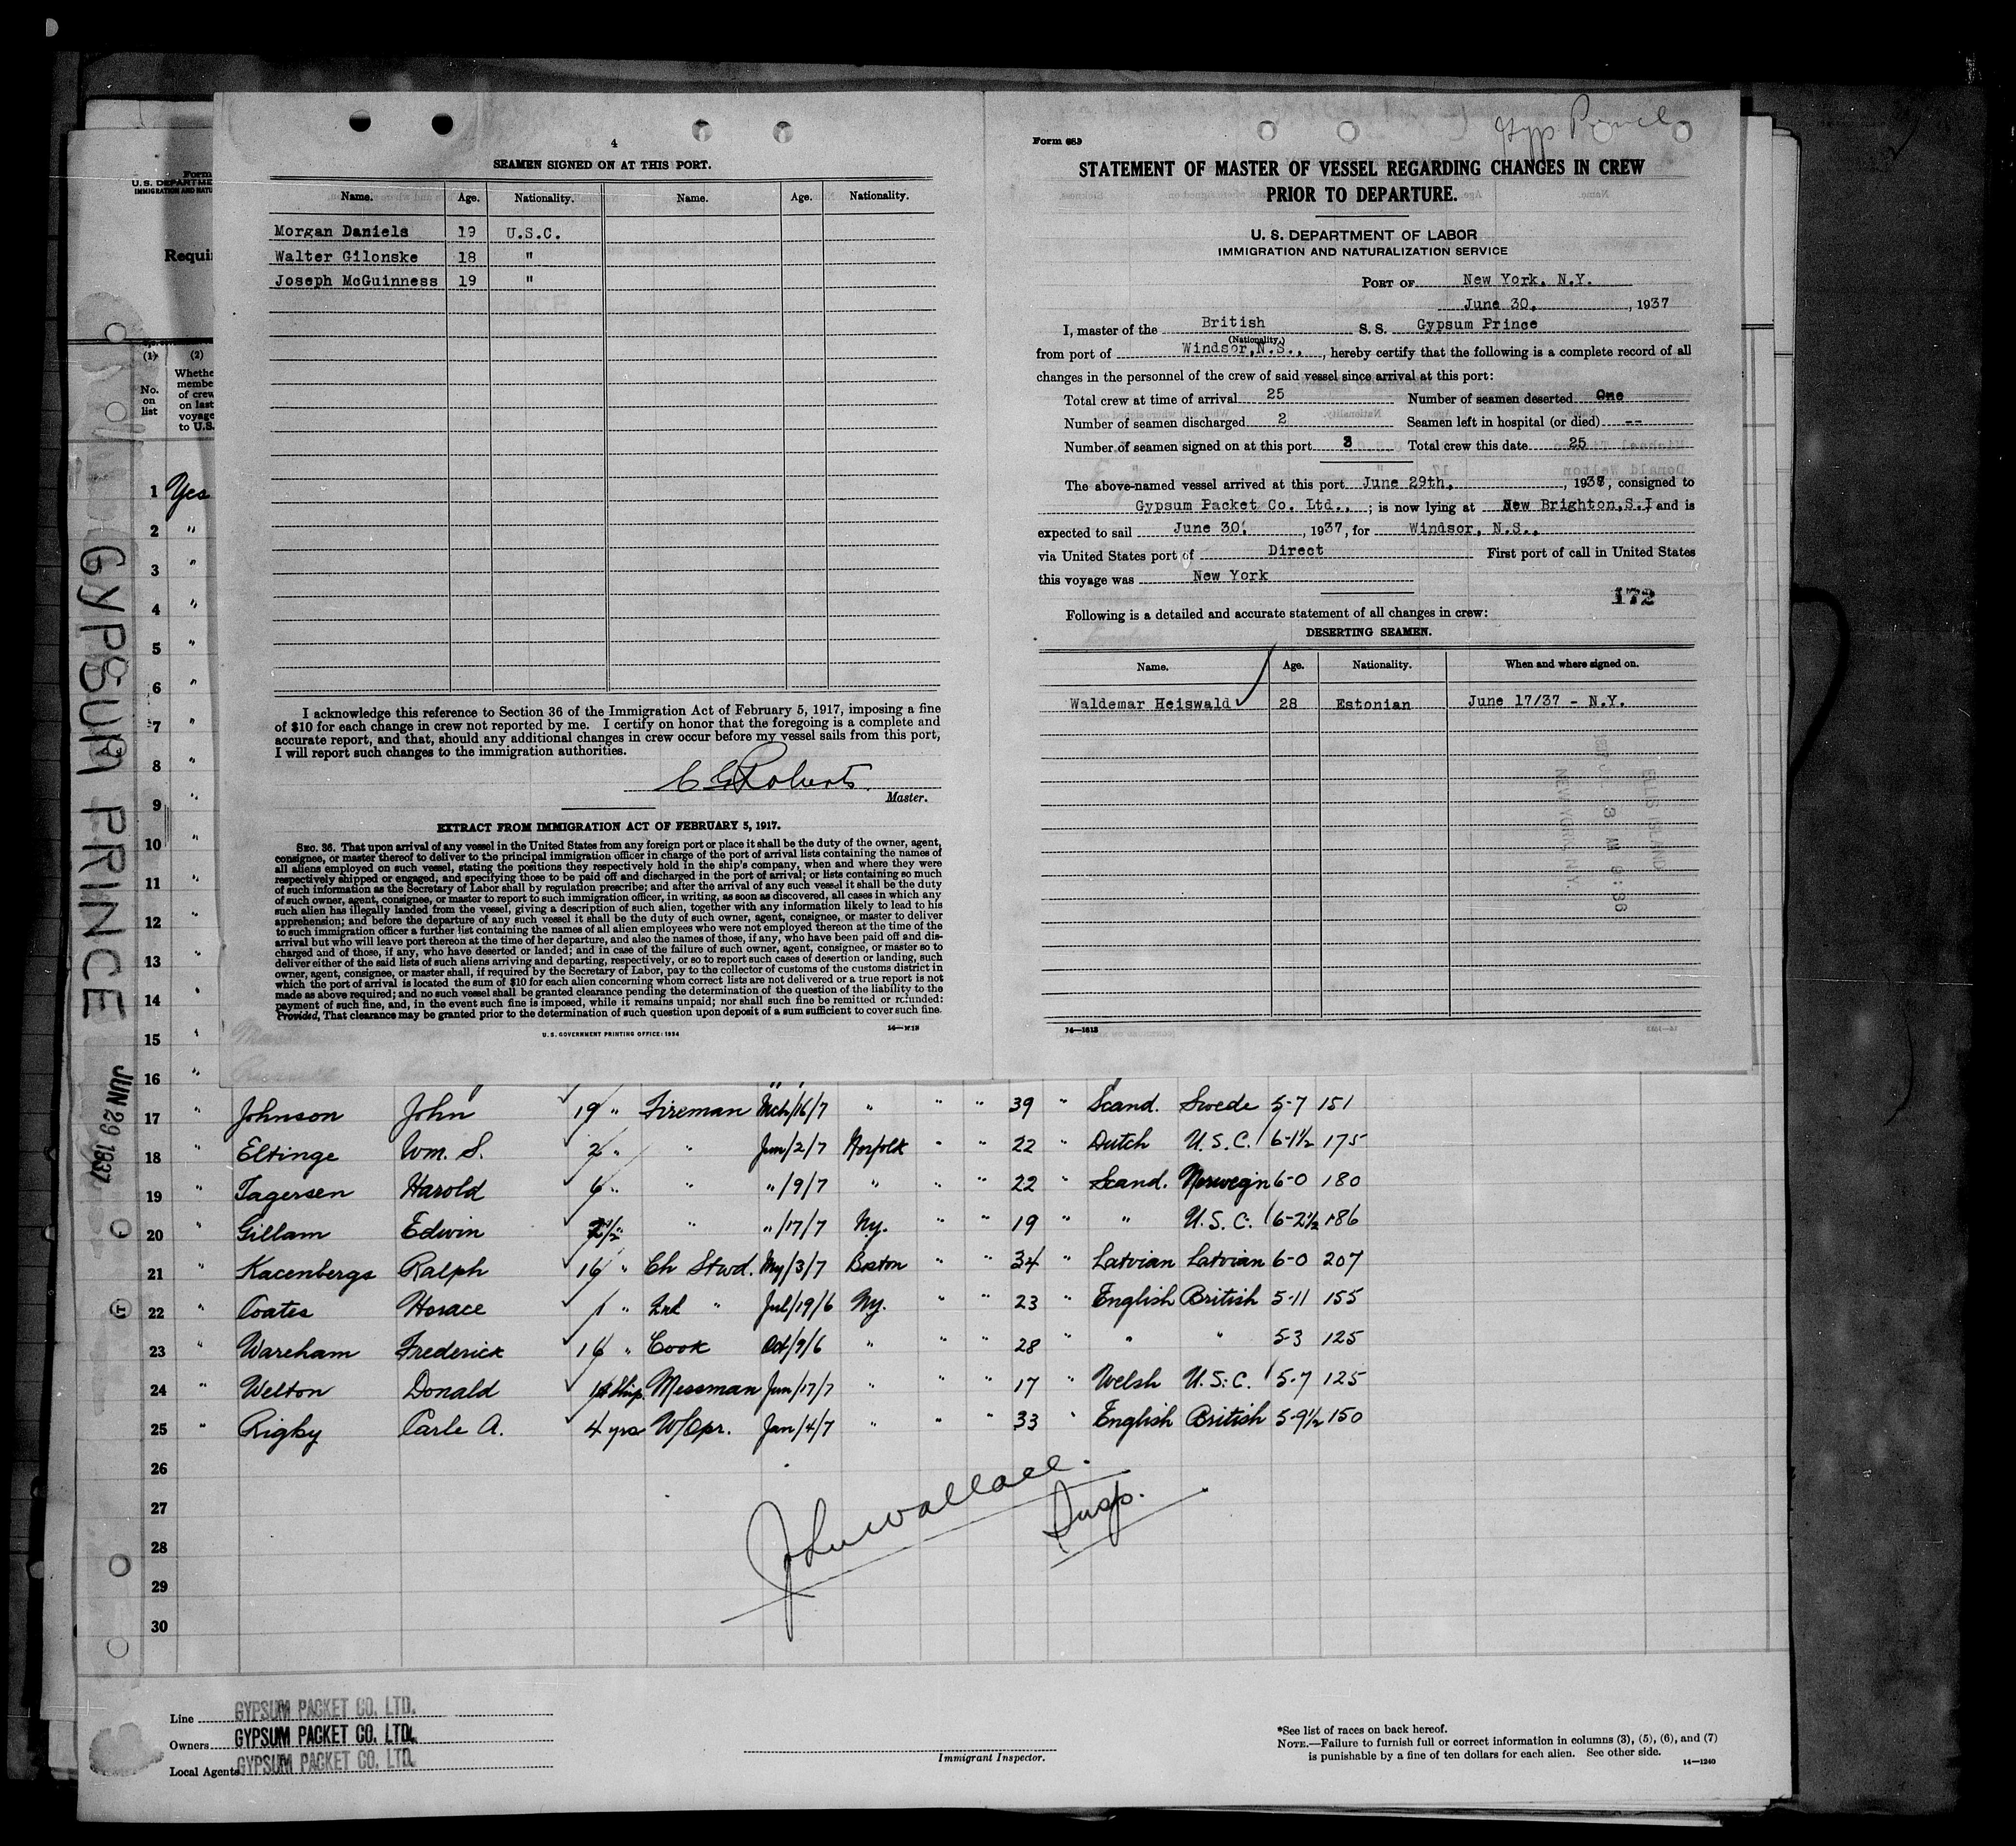 Gyp Prince
4
SEAMEN SIGNED ON AT THIS PORT.
Name. Age. Nationality. Name. Age. Nationality.
Morgan Daniels 19 U.S.C.
Walter Gilonske 18 "
Joseph McGuinness 19 "
I acknowledge this reference to Section 36 of the Immigration Act of February 5, 1917, imposing a fine
of $10 for each change in crew not reported by me. I certify on honor that the foregoing is a complete and
accurate report, and that, should any additional changes in crew occur before my vessel sails from this port,
I will report such changes to the immigration authorities.
C G Roberts
Master.
EXTRACT FROM IMMIGRATION ACT OF FEBRUARY 5, 1917.
SEC. 36. That upon arrival of any vessel in the United States from any foreign port or place it shall be the duty of the owner, agent,
consignee, or master thereof to deliver to the principal immigration officer in charge of the port of arrival lists containing the names of
all aliens employed on such vessel, stating the positions they respectively hold in the ship's company, when and where they were
respectively shipped or engaged, and specifying those to be paid off and discharged in the port of arrival; or lists containing so much
of such information as the Secretary of Labor shall by regulation prescribe; and after the arrival of any such vessel it shall be the duty
of such owner, agent, consignee, or master to report to such immigration officer, in writing, as soon as discovered, all cases in which any
such alien has illegally landed from the vessel, giving a description of such alien, together with any information likely to lead to his
apprehension; and before the departure of any such vessel it shall be the duty of such owner, agent, consignee, or master to deliver
to such immigration officer a further list containing the names of all alien employees who were not employed thereon at the time of the
arrival but who will leave port thereon at the time of her departure, and also the names of those, if any, who have been paid off and dis-
charged and of those, if any, who have deserted or landed; and in case of the failure of such owner, agent, consignee, or master so to
deliver either of the said lists of such aliens arriving and departing, respectively, or so to report such cases of desertion or landing, such
owner, agent, consignee, or master shall, if required by the Secretary of Labor, pay to the collector of customs of the customs district in
which the port of arrival is located the sum of $10 for each alien concerning whom correct lists are not delivered or a true report is not
made as above required; and no such vessel shall be granted clearance pending the determination of the question of the liability to the
payment of such fine, and, in the event such fine is imposed, while it remains unpaid; nor shall such fine be remitted or refunded:
Provided, That clearance may be granted prior to the determination of such question upon deposit of a sum sufficient to cover such fine.
U. S. GOVERNMENT PRINTING OFFICE: 1934
Form 689
STATEMENT OF MASTER OF VESSEL REGARDING CHANGES IN CREW
PRIOR TO DEPARTURE.
U. S. DEPARTMENT OF LABOR
IMMIGRATION AND NATURALIZATION SERVICE
PORT OF New York, N.Y.
June 30, , 1937
I, master of the British S. S. Gypsum Prince
(Nationality.)
from port of Windsor, N.S., , hereby certify that the following is a complete record of all
changes in the personnel of the crew of said vessel since arrival at this port:
Total crew at time of arrival 25 Number of seamen deserted One
Number of seamen discharged 2 Seamen left in hospital (or died) --
Number of seamen signed on at this port 3 Total crew this date 25
The above-named vessel arrived at this port June 29th, , 1937, consigned to
Gypsum Packet Co. Ltd., ; is now lying at New Brighton, S.I and is
expected to sail June 30, , 1937, for Windsor, N.S.,
via United States port of Direct First port of call in United States
this voyage was New York
172
Following is a detailed and accurate statement of all changes in crew:
DESERTING SEAMEN.
Name. Age. Nationality. When and where signed on.
Waldemar Heiswald 28 Estonian June 17/37 - N.Y.
ELLIS ISLAND
NEW YORK, N.Y.
14—1613
Form
U. S. DEPARTME
IMMIGRATION AND NATU
Requi
(1) (2)
No. on list
Whethe
membe
of crew
on last
voyage
to U.S.
GYPSUM PRINCE
JUN 29 1937
1 Yes
2 "
3 "
4 "
5 "
6 "
7 "
8 "
9 "
10 "
11 "
12 "
13 "
14 "
15 "
16 "
17 " Johnson John 19 " Fireman Mch/16/7 " " " 39 " Scand. Swede 5-7 151
18 " Eltinge Wm. S. 2 " " Jun/2/7 Norfolk " " 22 " Dutch U.S.C. 6-1½ 175
19 " Tagersen Harold 6 " " "/9/7 " " " 22 " Scand. Norwegn 6-0 180
20 " Gillam Edwin 2½ " " "/17/7 Ny. " " 19 " " U.S.C. 6-2½ 186
21 " Kacenbergs Ralph 16 " Ch Stwd. My/3/7 Boston " " 34 " Latvian Latvian 6-0 207
22 " Coates Horace 1 " 2nd " Jul/19/6 Ny. " " 23 " English British 5-11 155
23 " Wareham Frederick 16 " Cook Oct/9/6 " " " 28 " " " 5-3 125
24 " Welton Donald 1st Ship. Messman Jun/17/7 " " " 17 " Welsh U.S.C. 5-7 125
25 " Rigby Carle A. 4 yrs W/Opr. Jan/4/7 " " " 33 " English British 5-9½ 150
26
27
28
29
30
John Wallace.
Insp.
Line GYPSUM PACKET CO. LTD.
Owners GYPSUM PACKET CO. LTD.
Local Agents GYPSUM PACKET CO. LTD.
Immigrant Inspector.
*See list of races on back hereof.
NOTE.—Failure to furnish full or correct information in columns (3), (5), (6), and (7)
is punishable by a fine of ten dollars for each alien. See other side.
14—1240